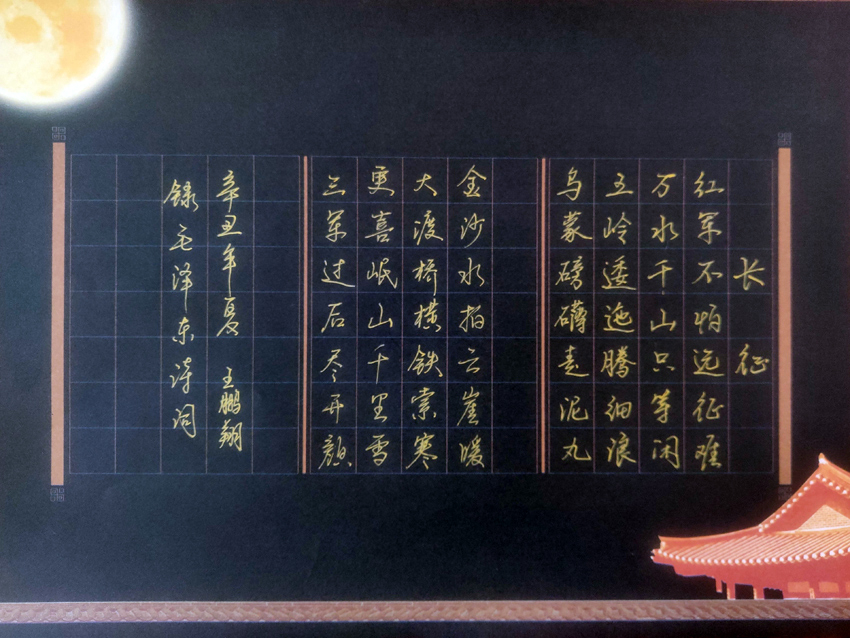 长征
红军不怕远征难
万水千山只等闲
五岭逶迤腾细浪
乌蒙磅礴走泥丸
金沙水拍云崖暖
大渡桥横铁索寒
更喜岷山千里雪
三军过后尽开颜
辛丑年夏 王鹏翔
录毛泽东诗词